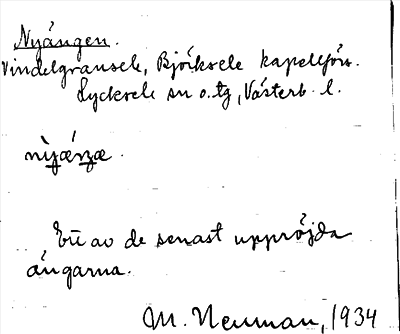 Nyängen.
Vindelgransele, Björksele kapellförs.
Lycksele sn o. tg, Västerb. l.
En av de senast uppröjda
ängarna.
M. Neuman, 1934